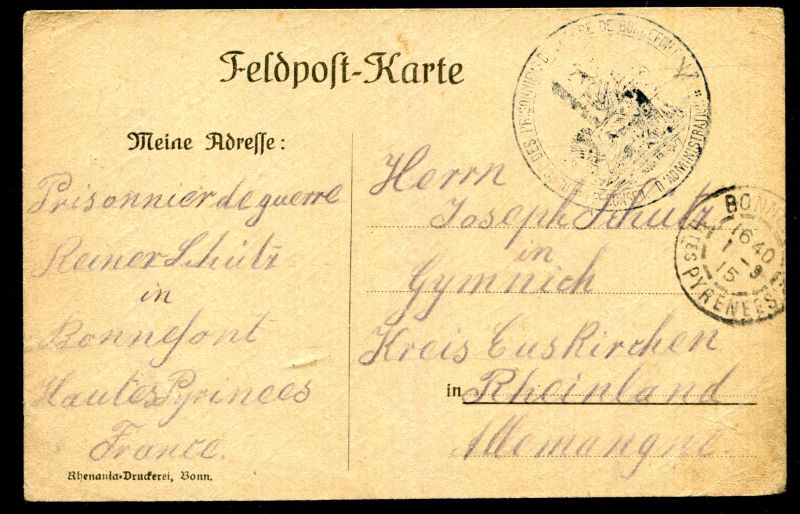 Feldpost-Karte
DES PRISONNIERS DE GUERRE DE BONNEFONT
D'ADMINISTRATION
Meine Adresse:
Prisonnier de guerre
Reiner Schütz
in
Bonnefont
Hautes Pyrinees
France.
Rhenania-Druckerei, Bonn.
Herrn
Joseph Schütz
in
Gymnich
Kreis Euskirchen
in Rheinland
Allemangne.
BONN
16 40
1 - 9
15
TES PYRENEES